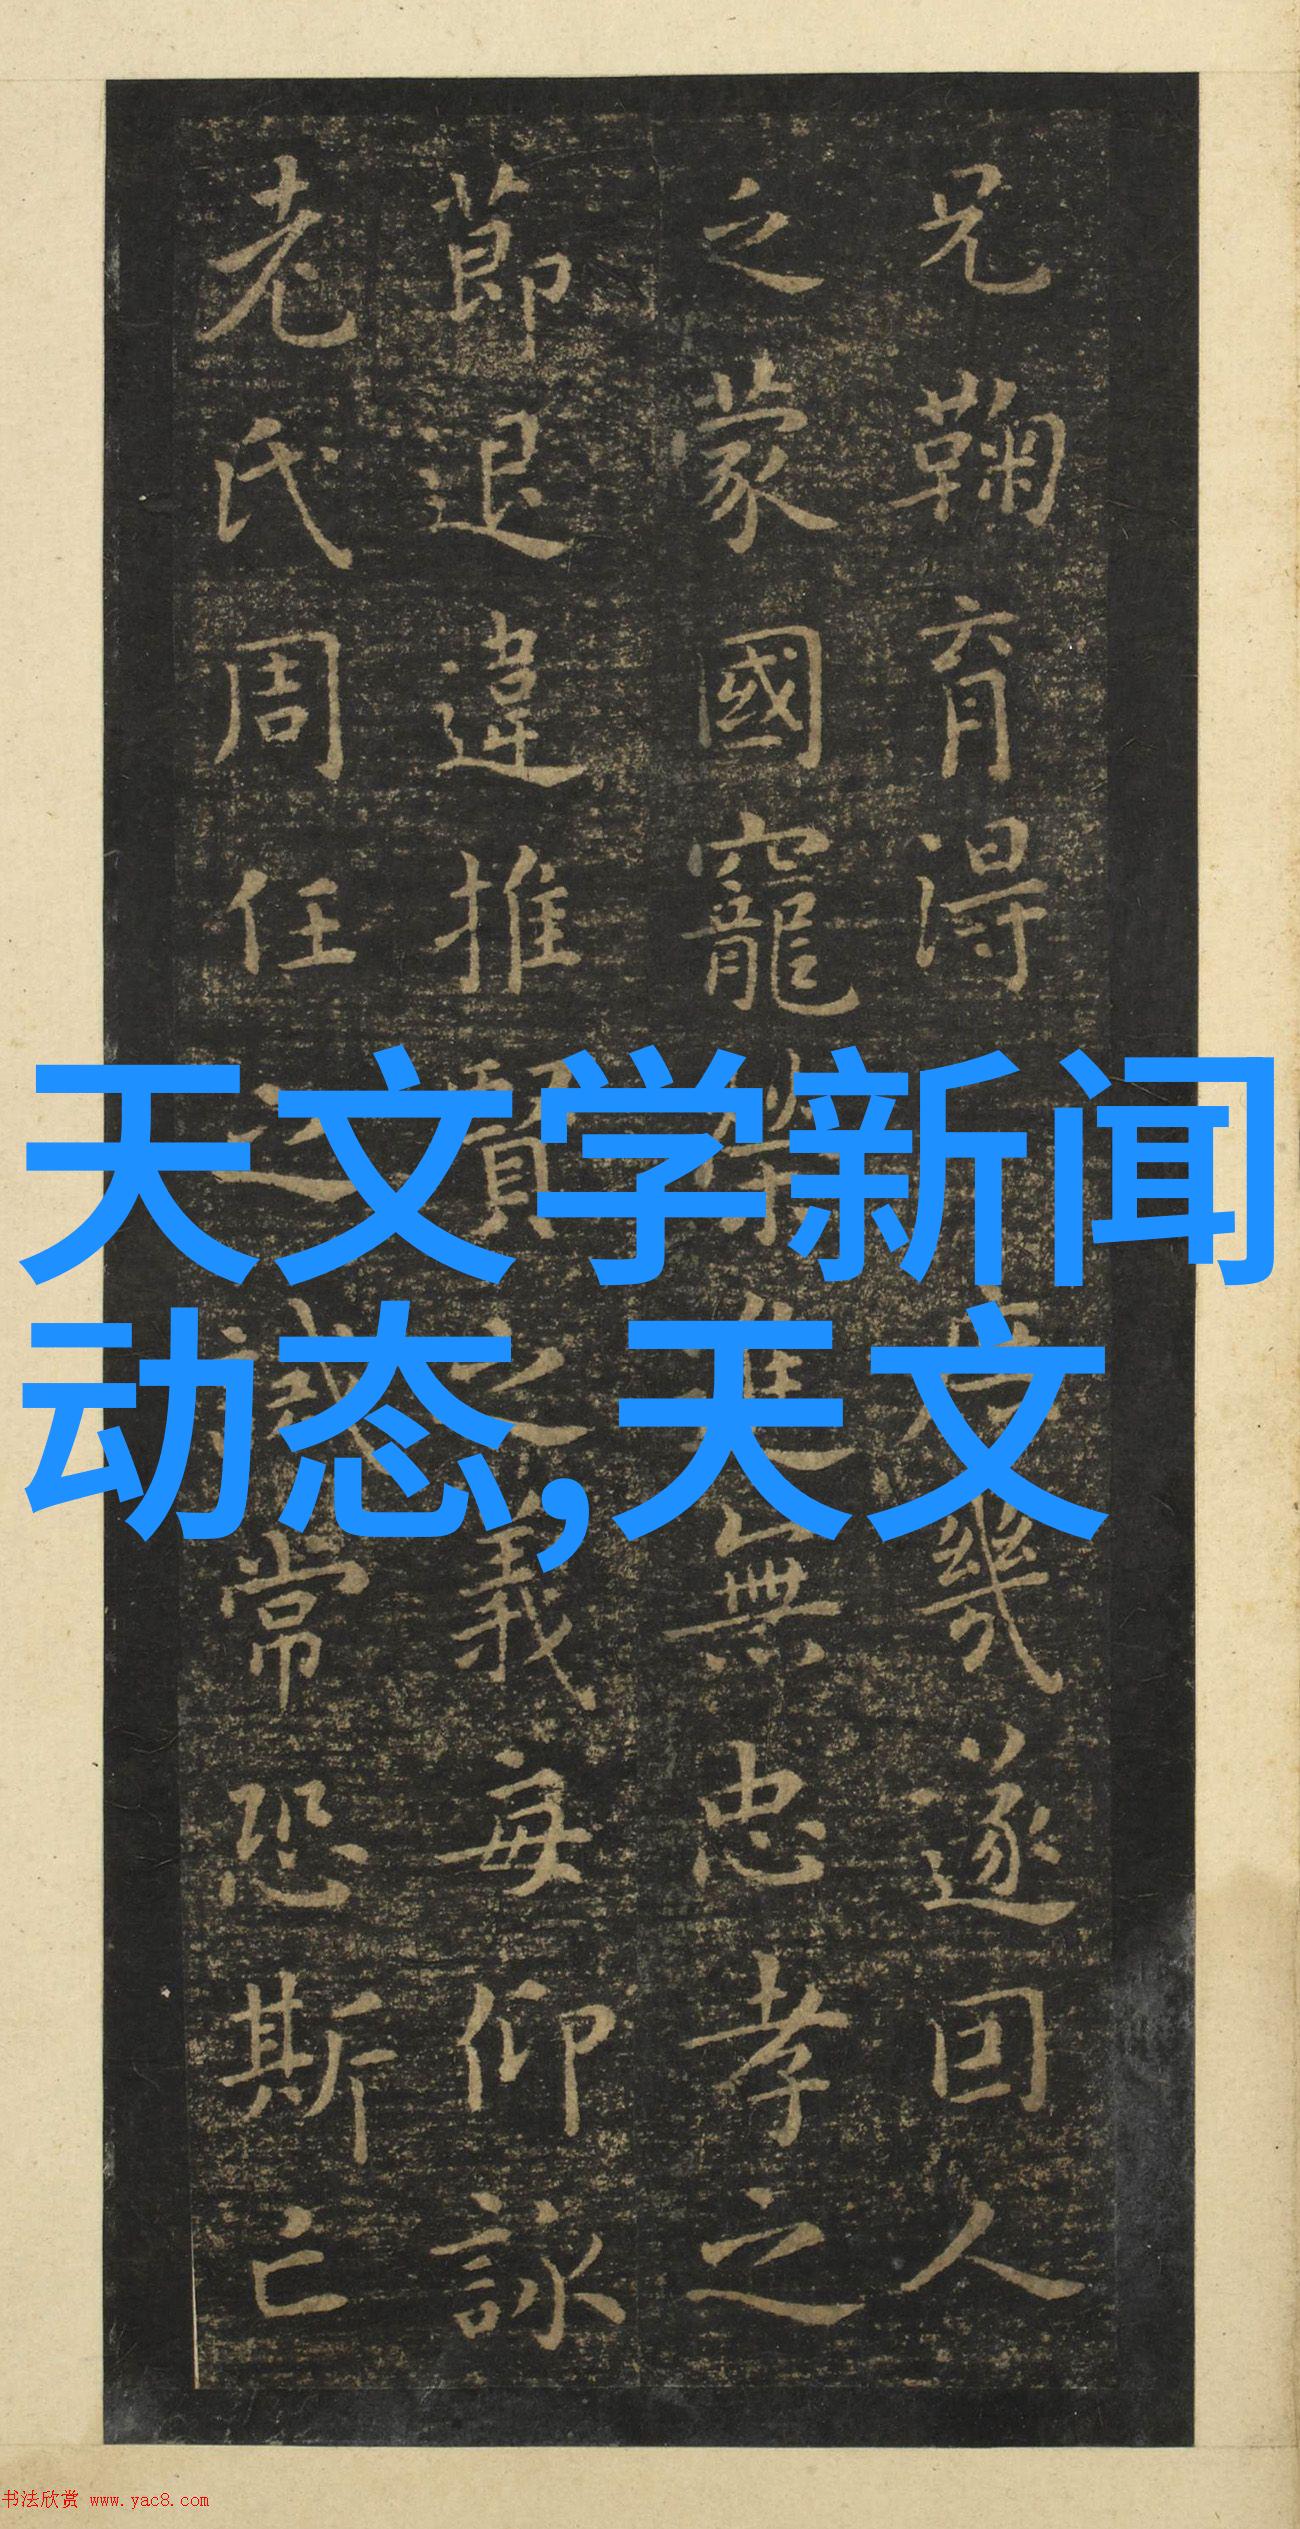 兄鞠育得庶幾遂因人
乏蒙國寵榮進無忠孝之
節退違推賢之義每仰詠
老氏周任之誡常恐斯亡
天文学新闻
动态,天文
书法欣赏 www.yac8.com